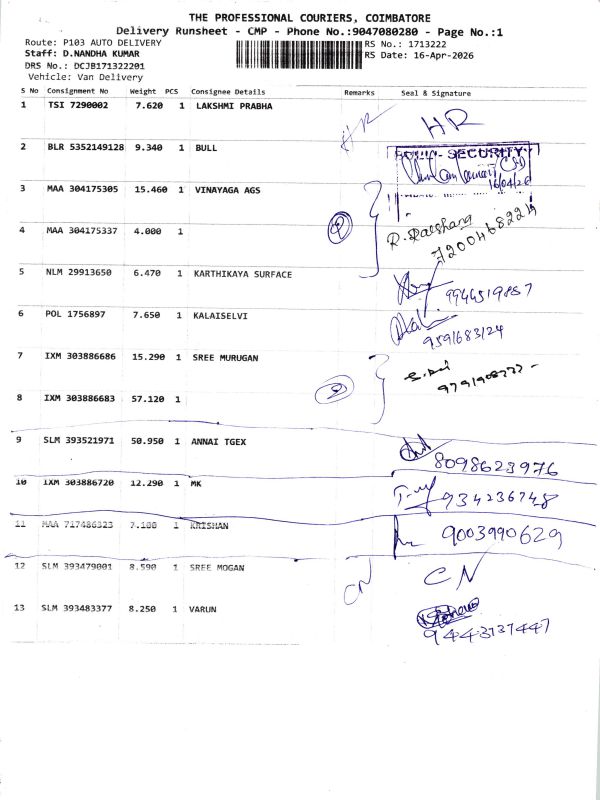 THE PROFESSIONAL COURIERS, COIMBATORE
Delivery Runsheet - CMP - Phone No.:9047080280 - Page No.:1
Route: P103 AUTO DELIVERY
RS No.: 1713222
Staff: D.NANDHA KUMAR
RS Date: 16-Apr-2026
DRS No.: DCJB171322201
Vehicle: Van Delivery
S No Consignment No Weight PCS Consignee Details Remarks Seal & Signature
1 TSI 7290002 7.620 1 LAKSHMI PRABHA HR HR
2 BLR 5352149128 9.340 1 BULL SECURITY
16/04/26
3 MAA 304175305 15.460 1 VINAYAGA AGS
4 MAA 304175337 4.000 1 2 7200468224
5 NLM 29913650 6.470 1 KARTHIKAYA SURFACE
9944519857
6 POL 1756897 7.650 1 KALAISELVI
9591683124
7 IXM 303886686 15.290 1 SREE MURUGAN
8 IXM 303886683 57.120 1 2
9 SLM 393521971 50.950 1 ANNAI TGEX
8098623976
10 IXM 303886720 12.290 1 MK
934236748
11 MAA 717486323 7.100 1 KRISHAN 9003990629
12 SLM 393479001 8.590 1 SREE MOGAN CN CN
13 SLM 393483377 8.250 1 VARUN
9443737447